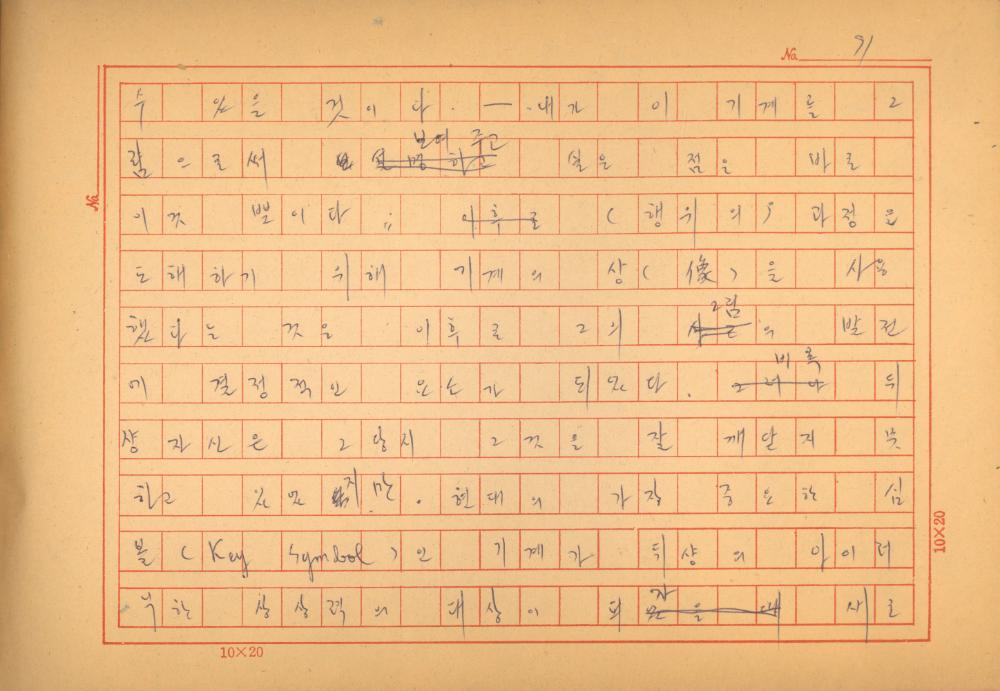 No. 91
수 있을 것이다. — 내가 이 기계를 그
람으로써 보여 주고 싶은 점을 바로
이것 뿐이다 〃 이후로 (행위의) 과정을
도해하기 위해 기계의 상(像)을 사용
했다는 것은 이후로 그의 그림의 발전
에 결정적인 요소가 되었다. 비록 뒤
샹 자신은 그 당시 그것을 잘 깨닫지 못
하고 있었지만. 현대의 가장 중요한 심
볼 (Key Symbol)인 기계가 뒤샹의 아이러
닉한 상상력의 대상이 되자 새로
No.
10×20
10×20